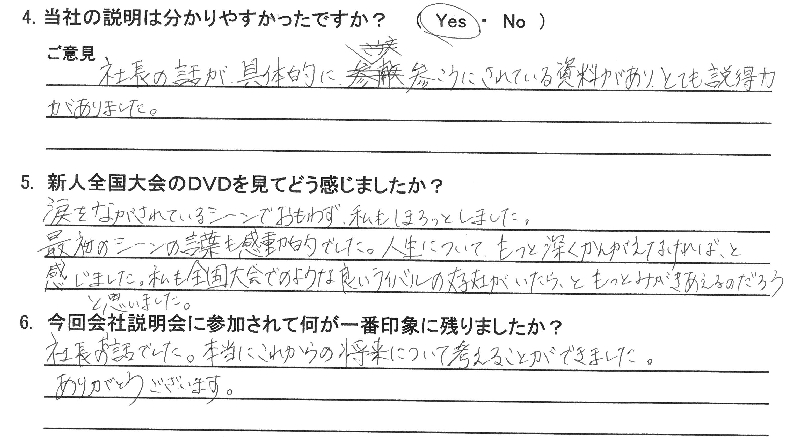 4. 当社の説明は分かりやすかったですか？ （ Yes ・ No ）
ご意見
社長の話が、具体的に、参こうにされている資料があり、とても説得力
がありました。
5. 新人全国大会のDVDを見てどう感じましたか？
涙をながされているシーンでおもわず、私もほろっとしました。
最初のシーンの言葉も感動的でした。人生について、もっと深くかんがえなければ、と
感じました。私も全国大会でのような良いライバルの存在がいたら、ともっとみがきあえるのだろう
と思いました。
6. 今回会社説明会に参加されて何が一番印象に残りましたか？
社長お話でした。本当にこれからの将来について考えることができました。
ありがとうございます。